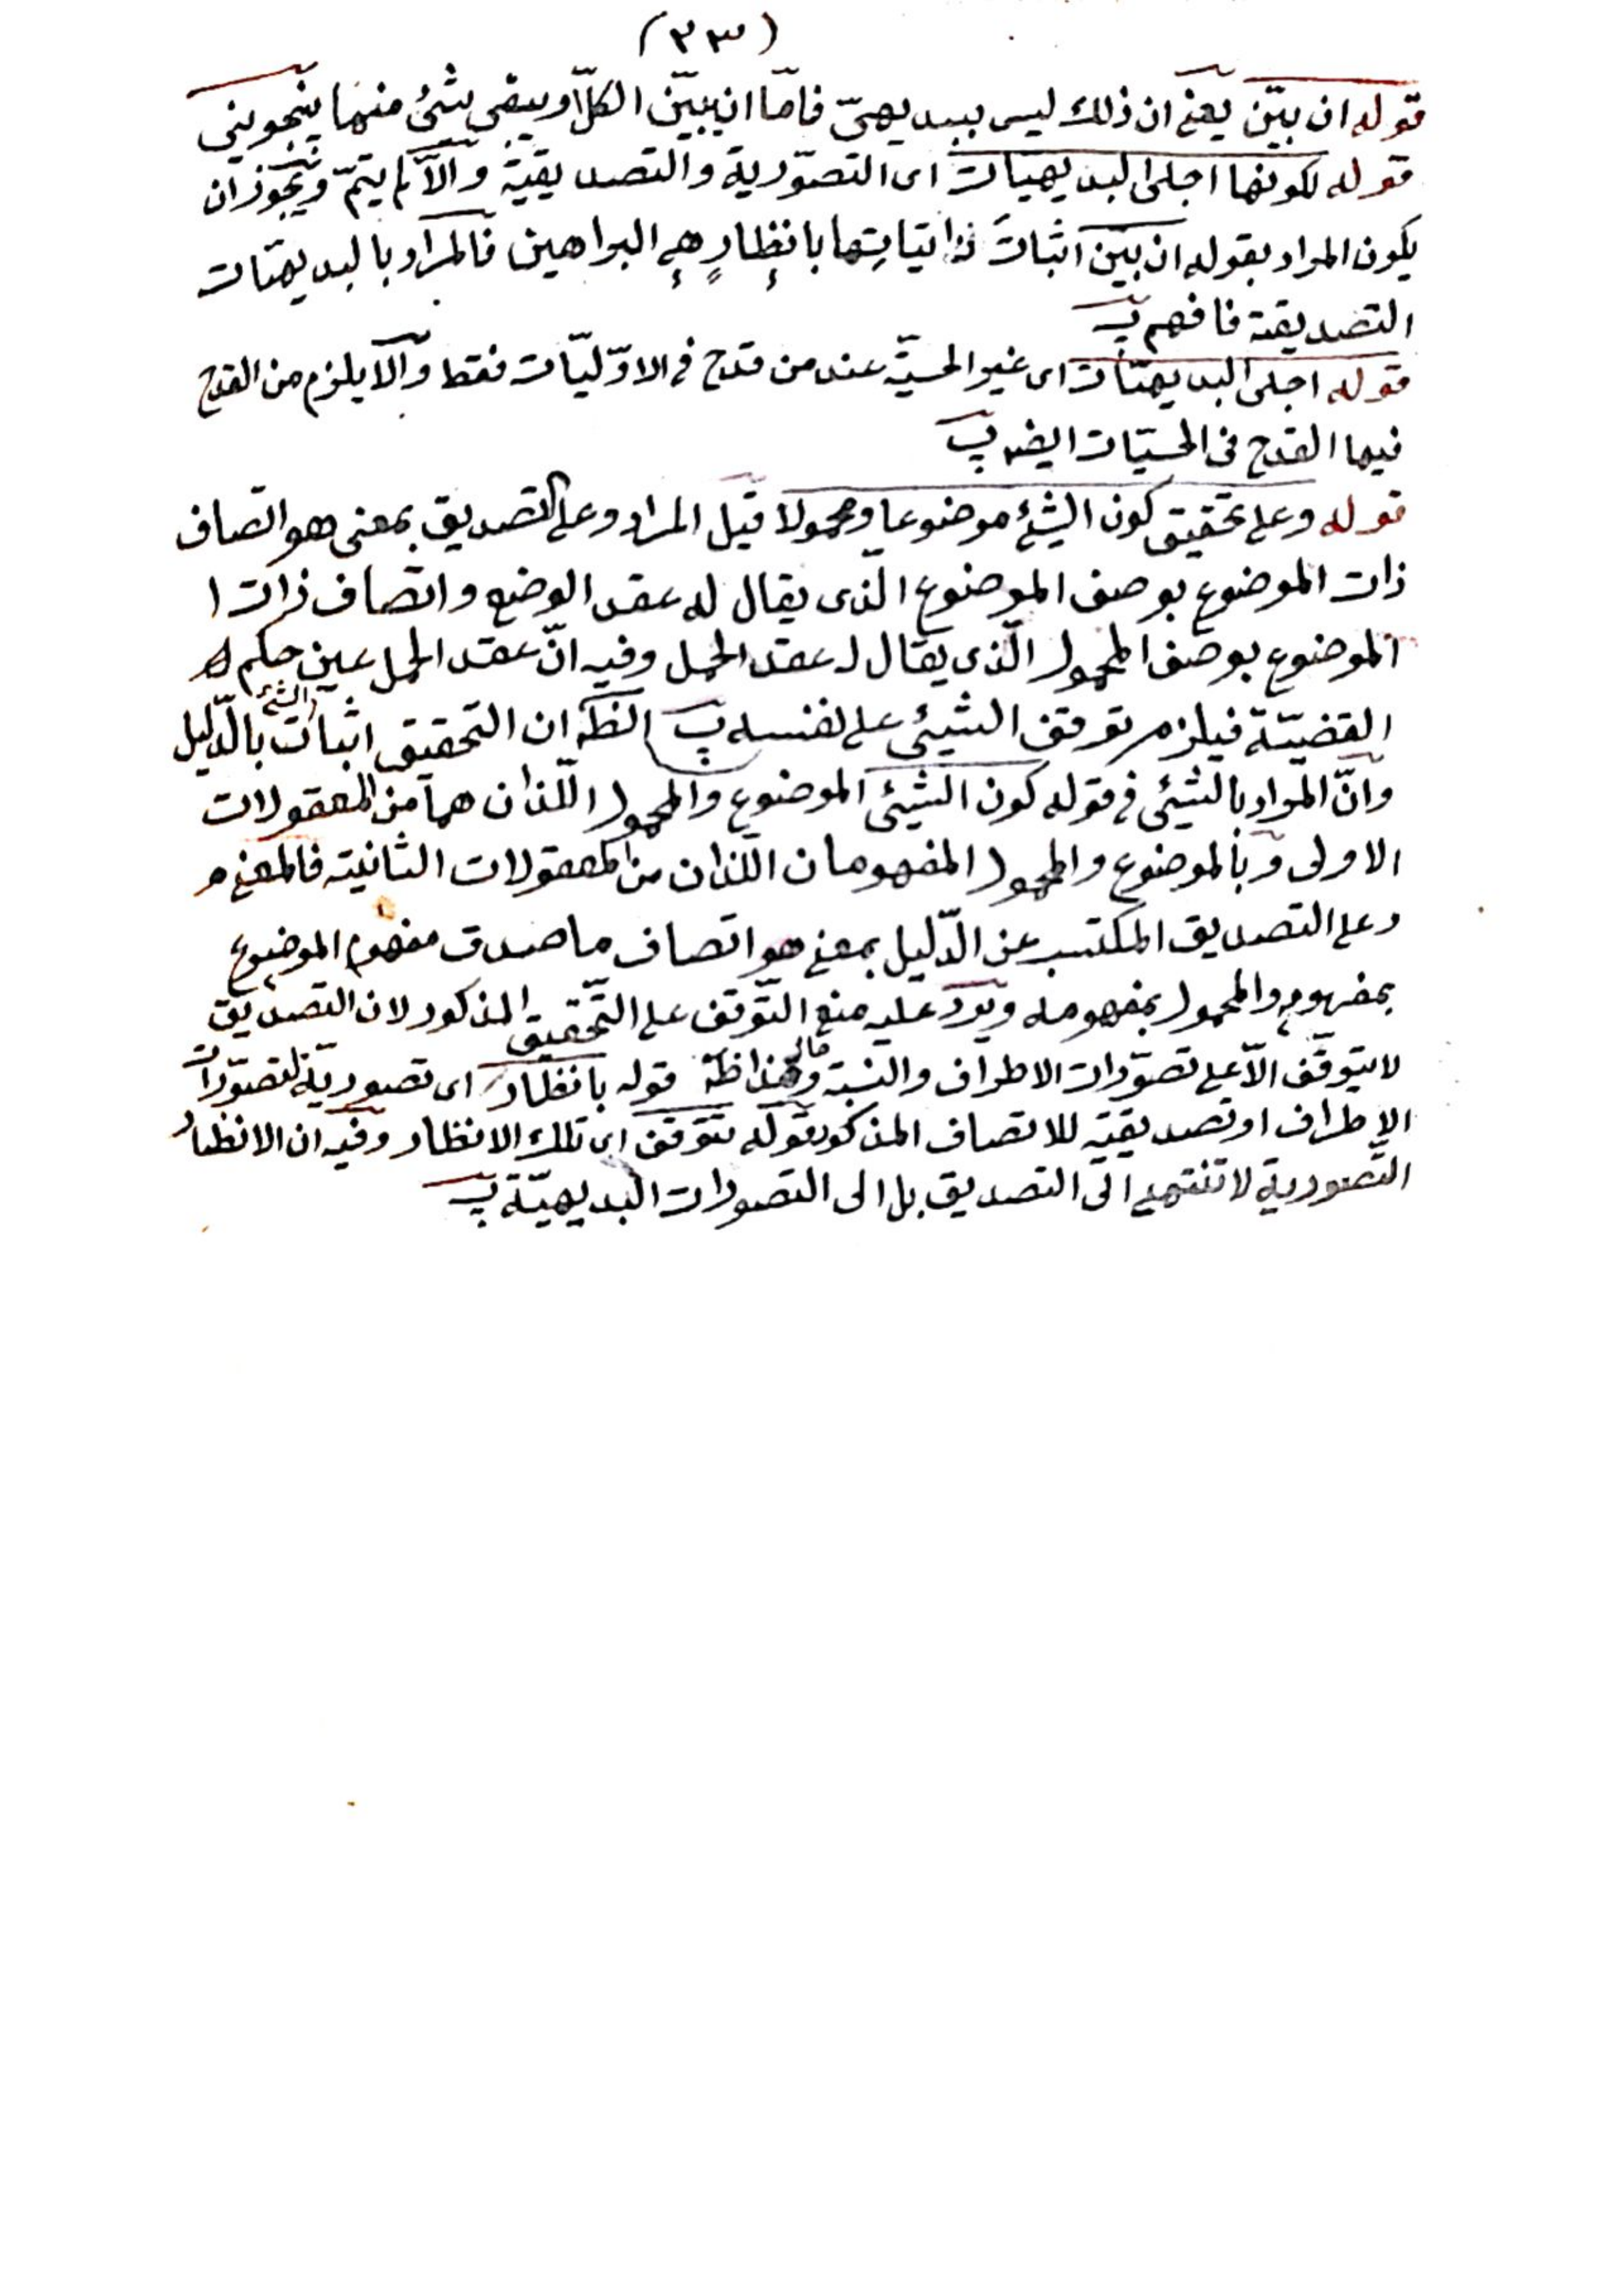 (٣٣)
قوله ان بيّن يعنى ان ذلك ليس ببديهىّ فامّا ان يبيّن الكلّ او يبقى شئ منهما
قوله لكونها اجلى البديهيات اى التصوّرية والتصديقيّة والاّ لم يتمّ ويجوز ان
يكون المراد بقوله ان بيّن اثبات ذاتياتها بانظار هى البراهين فالمراد بالبديهيّات
التصديقية فافهم
قوله اجلى البديهيّات اى غير الحسيّة عند من قدح فى الاوّليّات فقط والا يلزم من القدح
فيها القدح فى الحسيّات ايضا
قوله وعلى تحقيق كون الشئ موضوعا ومحمولا قيل المراد وعلى التصديق بمعنى هو اتصاف
ذات الموضوع بوصف الموضوع الّذى يقال له عقد الوضع واتصاف ذات ا
الموضوع بوصف المحمول الّذى يقال له عقد الحمل وفيه انّ عقد الحمل عين حكم
القضيّة فيلزم توقف الشيئى على نفسه الظ ان التحقيق اثبات الشئ بالدّليل
وانّ المراد بالشيئى فى قوله كون الشيئى الموضوع والمحمول اللّذان هما من المعقولات
الاولى وبالموضوع والمحمول المفهومان اللّذان من المعقولات الثانية فالمعنى
وعلى التصديق المكتسب عن الدّليل بمعنى هو اتصاف ما صدق مفهوم الموضوع
بمفهومه والمحمول بمفهومه ويرد عليه منع التّوقف على التّحقيق المذكور لان التصديق
لا يتوقف الاّ على تصوّرات الاطراف والنسبة وهذا ظ قوله بانظار اى تصوريّة لتصوّرات
الاطراف او تصديقيّة للاتصاف المذكور قوله تتوقف اى تلك الانظار وفيه ان الانظار
التّصورية لا تنتهى الى التصديق بل الى التصورات البديهيّة